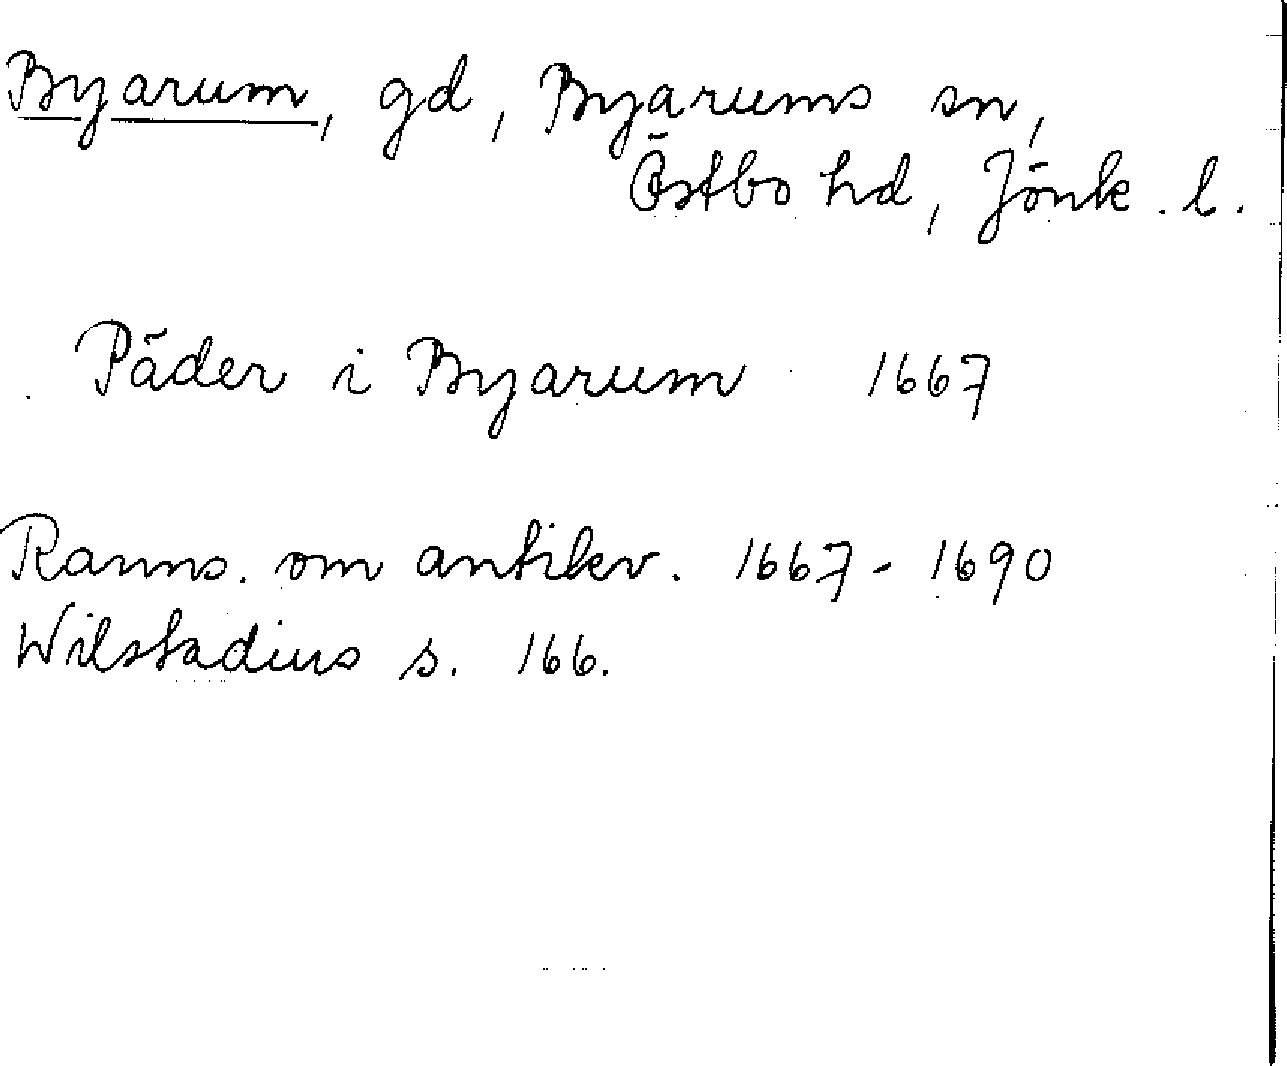 Byarum, gd, Byarums sn,
Östbo hd, Jönk. l.
Päder i Byarum 1667
Ranns. om antikv. 1667-1690
Wilstadius s. 166.